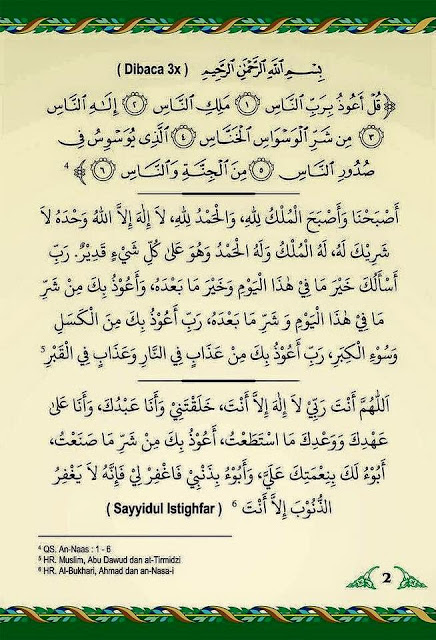 بِسْمِ اللَّهِ الرَّحْمَٰنِ الرَّحِيمِ ( Dibaca 3x )
﴿قُلْ أَعُوذُ بِرَبِّ النَّاسِ ﴿١﴾ مَلِكِ النَّاسِ ﴿٢﴾ إِلَٰهِ النَّاسِ
﴿٣﴾ مِن شَرِّ الْوَسْوَاسِ الْخَنَّاسِ ﴿٤﴾ الَّذِي يُوَسْوِسُ فِي
صُدُورِ النَّاسِ ﴿٥﴾ مِنَ الْجِنَّةِ وَالنَّاسِ ﴿٦﴾﴾ ⁴
أَصْبَحْنَا وَأَصْبَحَ الْمُلْكُ لِلَّهِ، وَالْحَمْدُ لِلَّهِ، لاَ إِلَهَ إِلاَّ اللهُ وَحْدَهُ لاَ
شَرِيْكَ لَهُ، لَهُ الْمُلْكُ وَلَهُ الْحَمْدُ وَهُوَ عَلَى كُلِّ شَيْءٍ قَدِيْرٌ. رَبِّ
أَسْأَلُكَ خَيْرَ مَا فِيْ هٰذَا الْيَوْمِ وَخَيْرَ مَا بَعْدَهُ، وَأَعُوْذُ بِكَ مِنْ شَرِّ
مَا فِيْ هٰذَا الْيَوْمِ وَ شَرِّ مَا بَعْدَهُ، رَبِّ أَعُوْذُ بِكَ مِنَ الْكَسَلِ
وَسُوْءِ الْكِبَرِ، رَبِّ أَعُوْذُ بِكَ مِنْ عَذَابٍ فِي النَّارِ وَعَذَابٍ فِي الْقَبْرِ⁵
اَللَّهُمَّ أَنْتَ رَبِّيْ لاَ إِلَهَ إِلاَّ أَنْتَ، خَلَقْتَنِيْ وَأَنَا عَبْدُكَ، وَأَنَا عَلَى
عَهْدِكَ وَوَعْدِكَ مَا اسْتَطَعْتُ، أَعُوْذُ بِكَ مِنْ شَرِّ مَا صَنَعْتُ،
أَبُوْءُ لَكَ بِنِعْمَتِكَ عَلَيَّ، وَأَبُوْءُ بِذَنْبِيْ فَاغْفِرْ لِيْ فَإِنَّهُ لاَ يَغْفِرُ
الذُّنُوْبَ إِلاَّ أَنْتَ ⁶ ( Sayyidul Istighfar )
⁴ QS. An-Naas : 1 - 6
⁵ HR. Muslim, Abu Dawud dan at-Tirmidzi
⁶ HR. Al-Bukhari, Ahmad dan an-Nasa-i
2